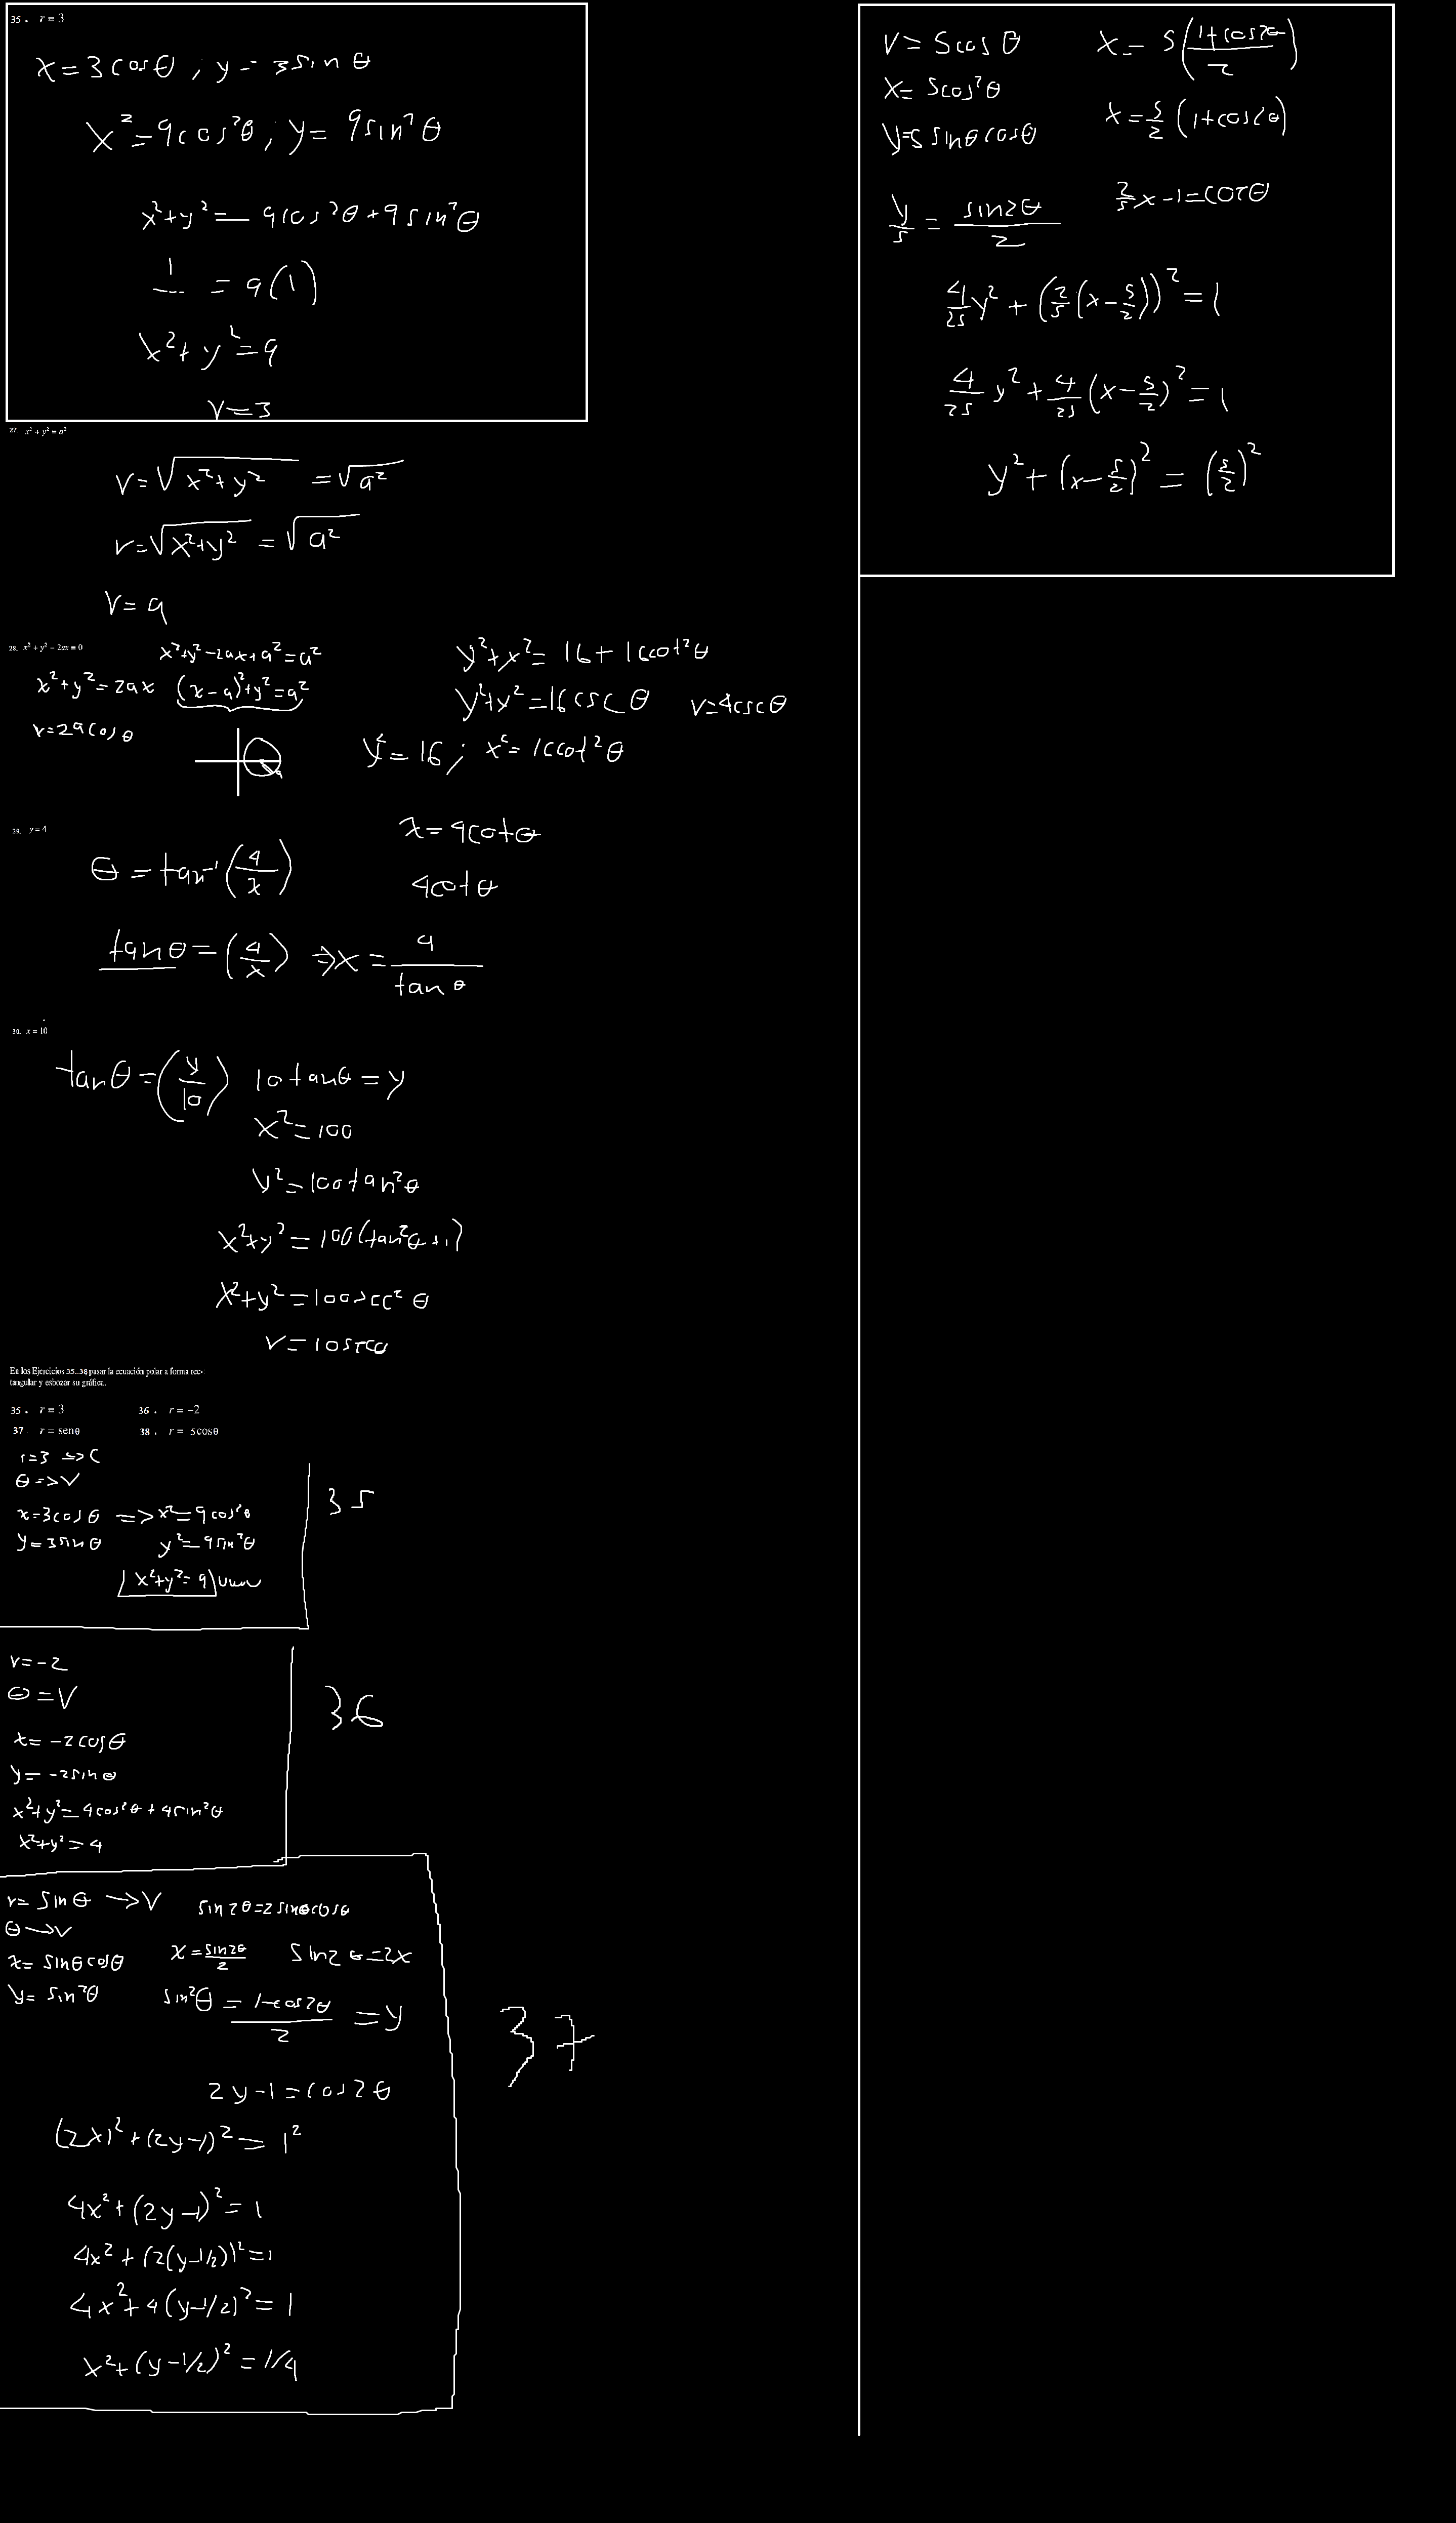 35 . r = 3
x = 3 cosθ ; y = 3 sin θ
x² = 9cos²θ ; y = 9sin²θ
x²+y² = 9cos²θ+9sin²θ
= 9(1)
x²+y² = 9
r = 3
27. x² + y² = a²
r = √x²+y² = √a²
r = √x²+y² = √a²
r = a
28. x² + y² − 2ax = 0
x²+y²−2ax+a²=a²
x²+y²=2ax (x−a)²+y²=a²
r=2acosθ
y²+x² = 16+16cot²θ
y²+x²=16cscθ r=4cscθ
y²=16 ; x²=16cot²θ
29. y = 4
x=4cotθ
θ = tan⁻¹(4/x)
4cotθ
tanθ = (4/x) ⇒ x = 4/tan θ
30. x = 10
tanθ = (y/10) 10tanθ = y
x²=100
y²=100tan²θ
x²+y²=100(tan²θ+1)
x²+y²=100sec²θ
r=10secθ
En los Ejercicios 35..38 pasar la ecuación polar a forma rec-
tangular y esbozar su gráfica.
35 . r = 3 36 . r = −2
37 r = senθ 38 . r = 5cosθ
r=3 => C
θ => V
x=3cosθ => x²=9cos²θ
y=3sinθ y²=9sin²θ
x²+y²=9
35
r=−2
θ=V
x= −2cosθ
y= −2sinθ
x²+y²=4cos²θ+4sin²θ
x²+y²=4
36
r= sinθ → V sin2θ=2sinθcosθ
θ → V
x= sinθcosθ x = sin2θ/2 sin2θ=2x
y= sin²θ sin²θ = 1−cos2θ/2 = y
2y−1=cos2θ
(2x)²+(2y−1)²=1²
4x²+(2y−1)²=1
4x²+(2(y−1/2))²=1
4x²+4(y−1/2)²=1
x²+(y−1/2)²=1/4
37
r= 5cosθ x= 5(1+cos2θ/2)
x= 5cos²θ
y=5sinθcosθ x=5/2(1+cos2θ)
y/5 = sin2θ/2 2/5x−1=cos2θ
4/25y²+(2/5(x−5/2))²=1
4/25y²+4/25(x−5/2)²=1
y²+(x−5/2)²=(5/2)²